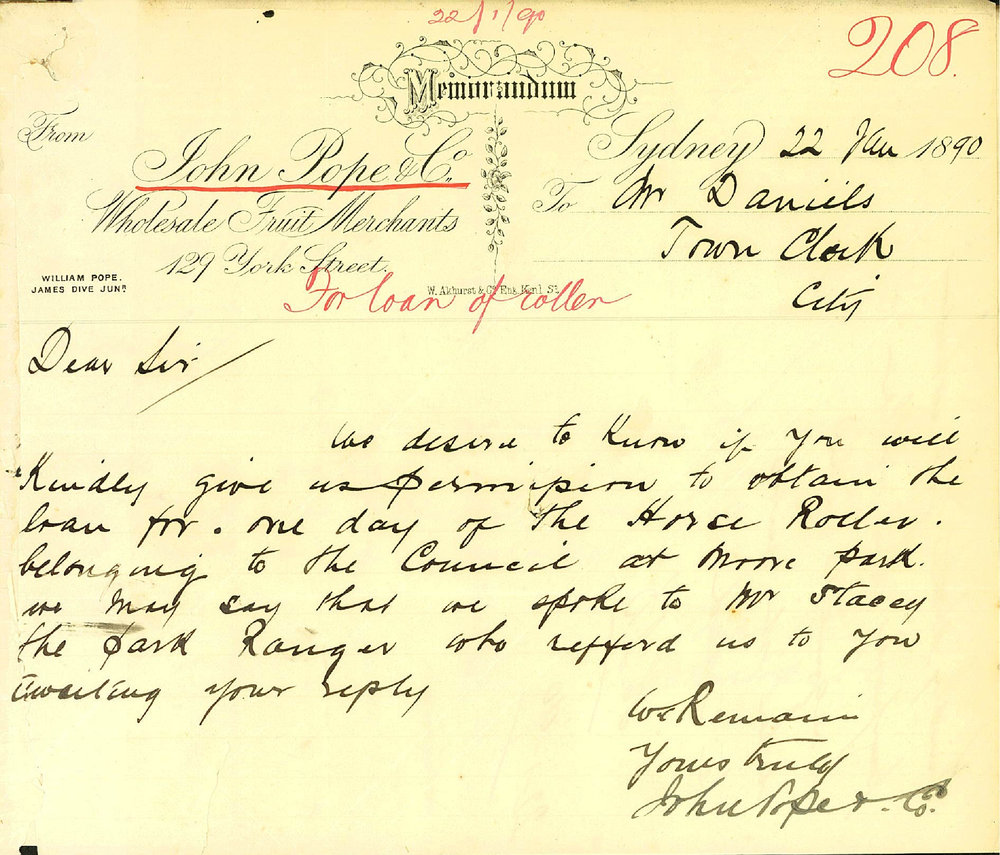 22/1/90
208.
Memorandum
From
John Pope & Co.
Wholesale Fruit Merchants
129 York Street.
WILLIAM POPE.
JAMES DIVE JUNR.
Sydney 22 Jan 1890
To Mr Daniels
Town Clerk
City
W. Akhurst & Co. Eng. Kent St.
For loan of roller
Dear Sir
We desire to Know if you will
Kindly give us permission to obtain the
loan for. one day of the Horse Roller.
belonging to the Council at Moore Park.
we may say that we spoke to Mr Stacey
the Park Ranger who refferd us to you
awaiting your reply
We Remain
Yours truly
John Pope & Co.